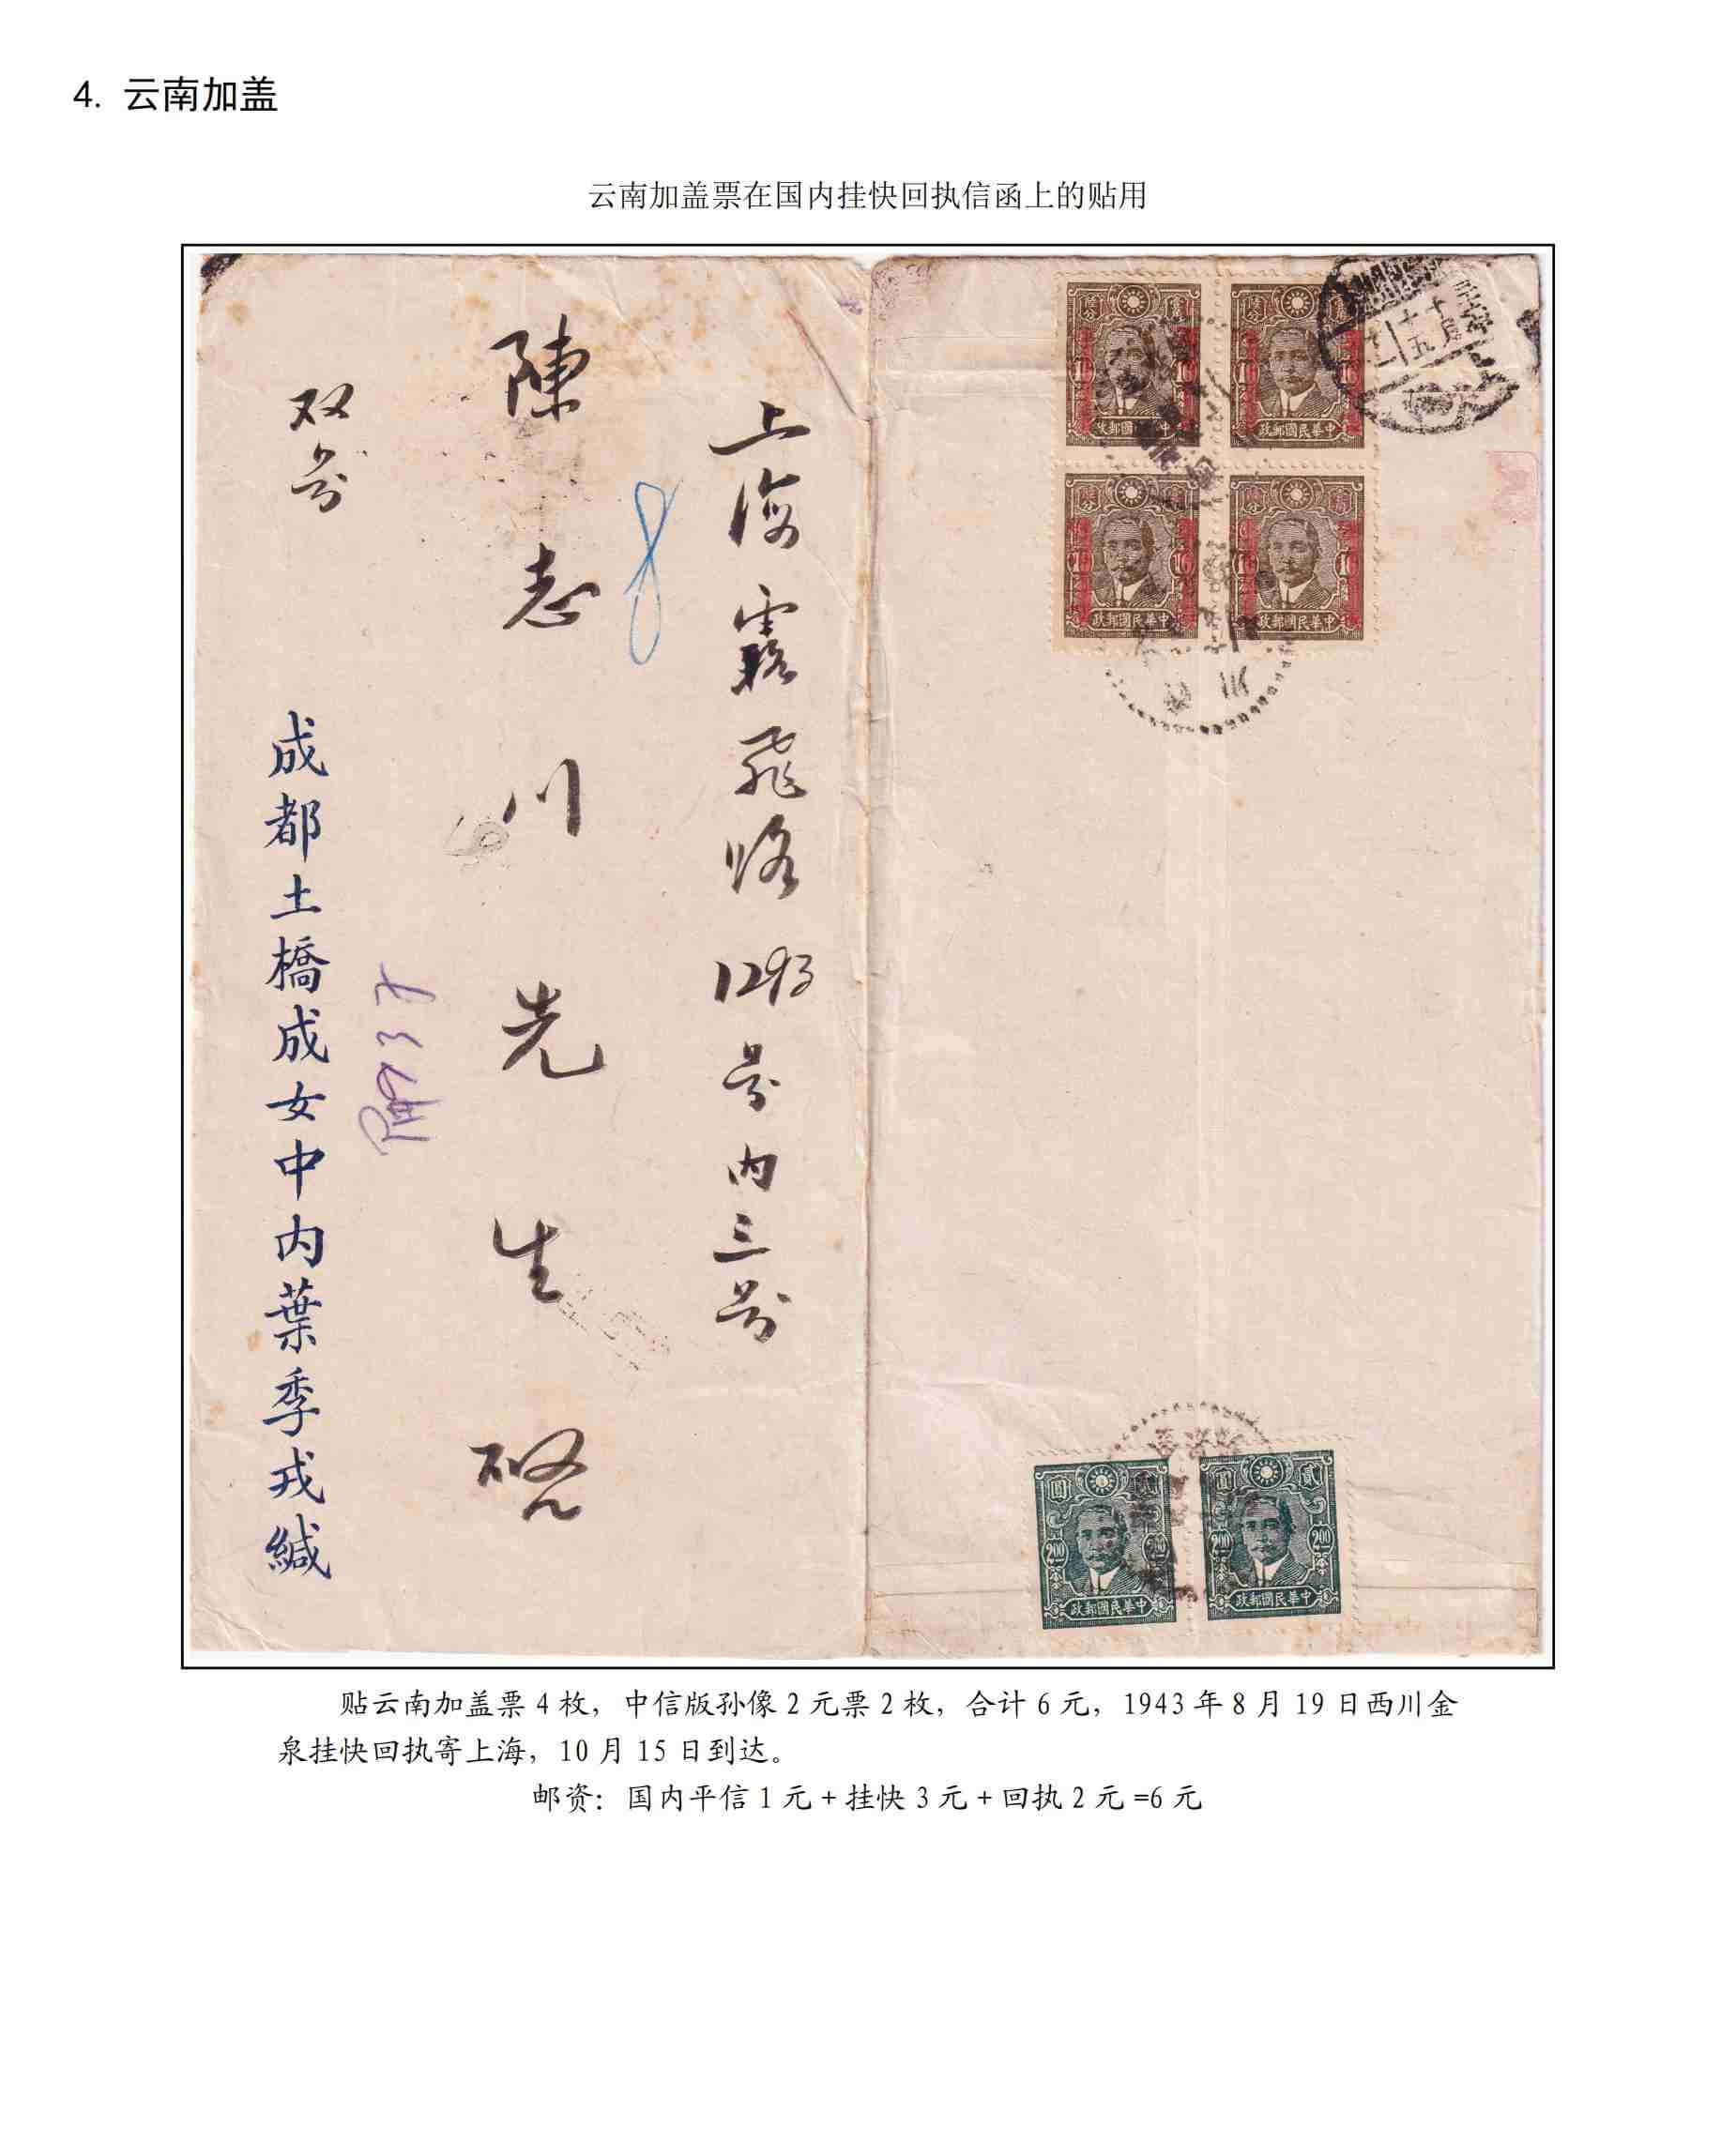 4. 云南加盖
云南加盖票在国内挂快回执信函上的贴用
上海霞飛路1293号内三号
陳志川先生啓
双号
成都土橋成女中内葉季戎緘
16 16
中華民國郵政
中華民國郵政
16 16
中華民國郵政
中華民國郵政
圓 貳
200 200
中華民國郵政
圓 貳
200 200
中華民國郵政
贴云南加盖票 4 枚，中信版孙像 2 元票 2 枚，合计 6 元，1943 年 8 月 19 日西川金
泉挂快回执寄上海，10 月 15 日到达。
邮资：国内平信 1 元 + 挂快 3 元 + 回执 2 元 =6 元